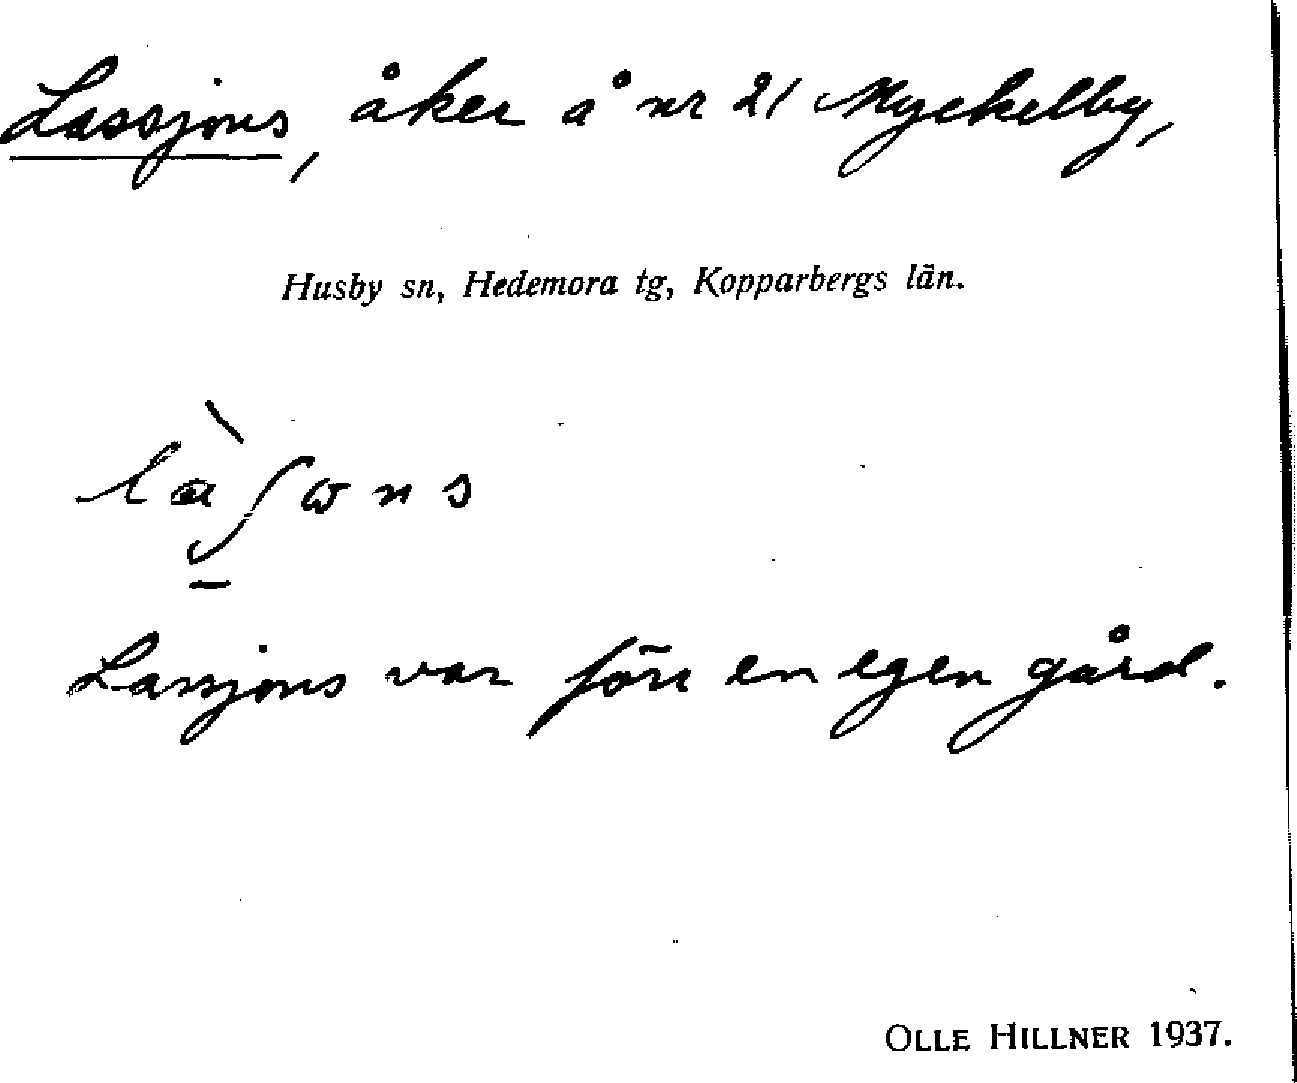 Lassjons, åker å nr 21 Myckelby,
Husby sn, Hedemora tg, Kopparbergs län.
Lassjons var förr en egen gård.
OLLE HILLNER 1937.